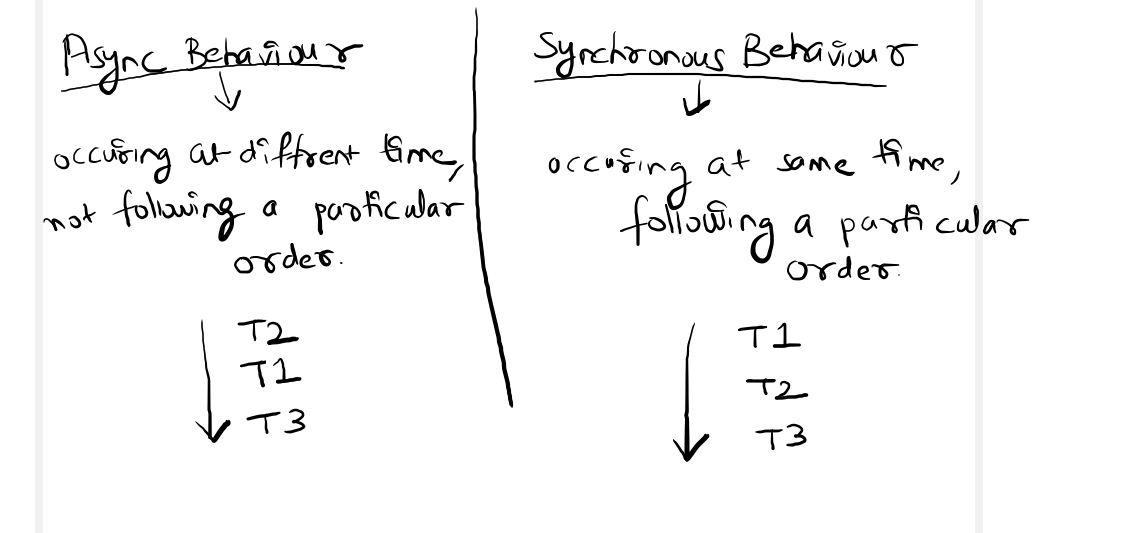 Async Behaviour
occuring at diffrent time,
not following a particular
order.
T2
T1
T3
Synchronous Behaviour
occuring at same time,
following a particular
order.
T1
T2
T3